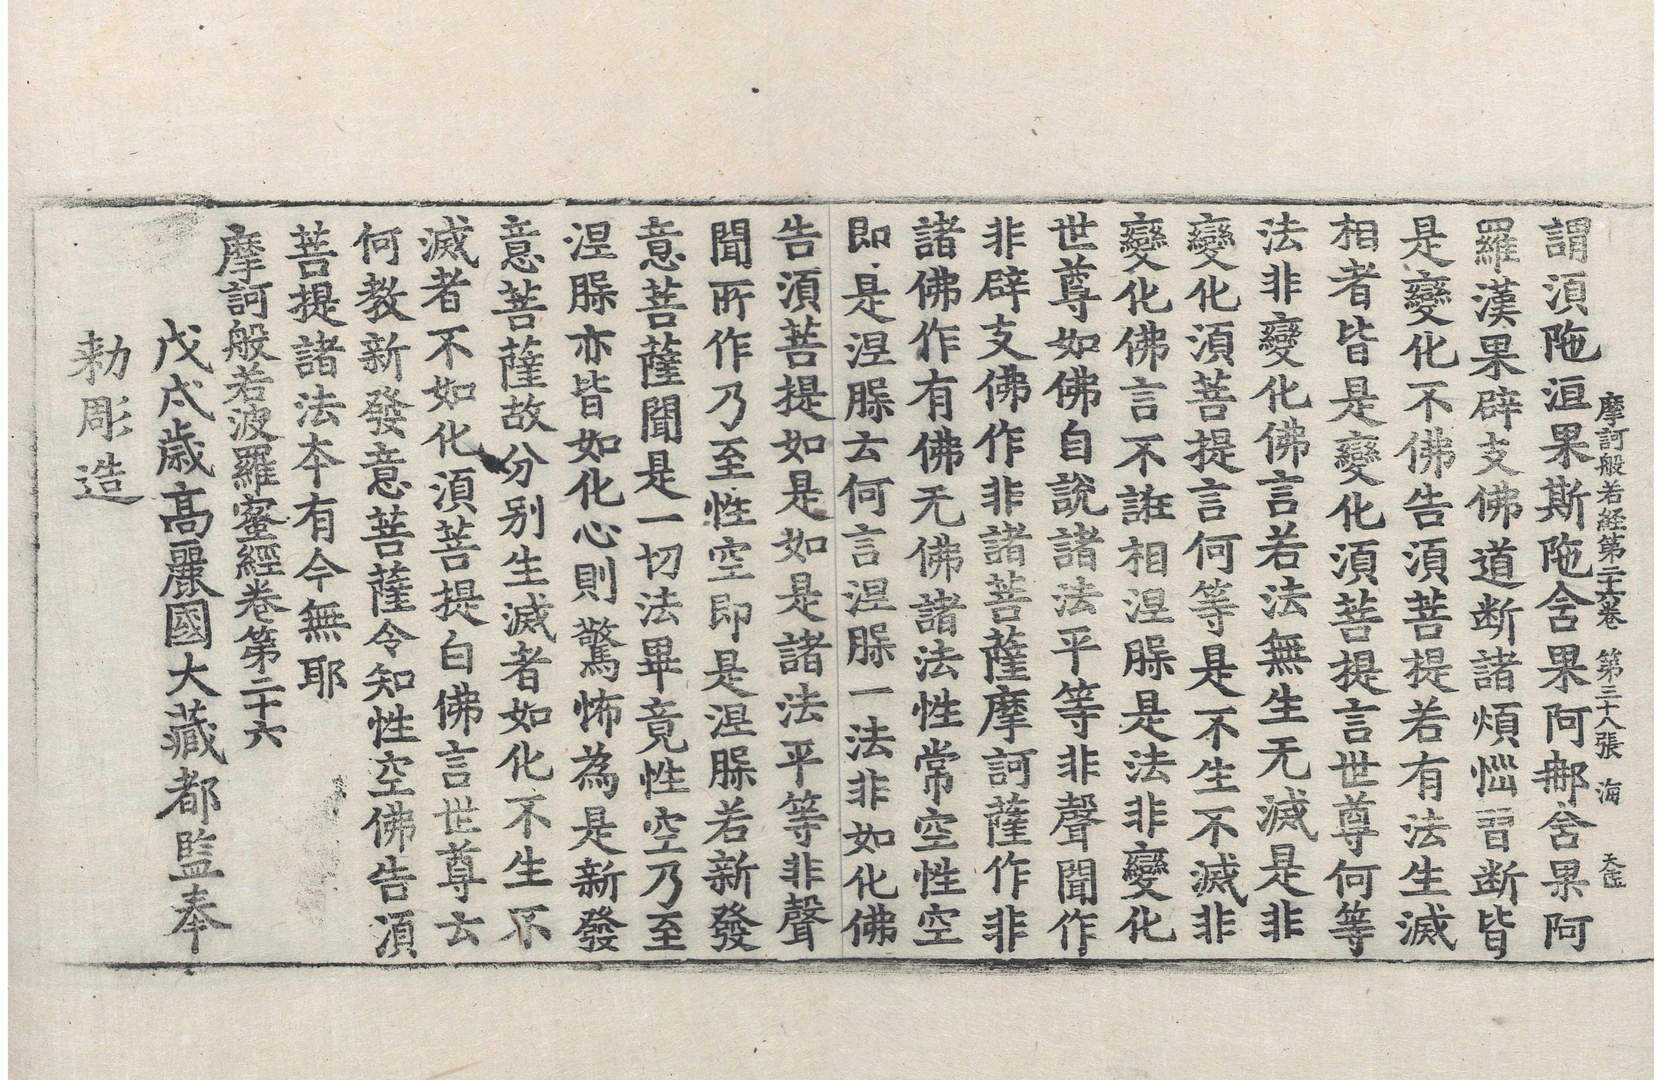 摩訶般若経第二十六卷 第三十八張 海
謂湏陁洹果斯陁含果阿那含果阿
羅漢果辟支佛道断諸煩惱習断皆
是變化不佛告湏菩提若有法生滅
相者皆是變化湏菩提言世尊何等
法非變化佛言若法無生无滅是非
變化湏菩提言何等是不生不滅非
變化佛言不誑相涅槃是法非變化
世尊如佛自說諸法平等非聲聞作
非辟支佛作非諸菩薩摩訶薩作非
諸佛作有佛无佛諸法性常空性空
即是涅槃云何言涅槃一法非如化佛
告湏菩提如是如是諸法平等非聲
聞所作乃至性空即是涅槃若新發
意菩薩聞是一切法畢竟性空乃至
涅槃亦皆如化心則驚怖為是新發
意菩薩故分别生滅者如化不生不
滅者不如化湏菩提白佛言世尊云
何教新發意菩薩令知性空佛告湏
菩提諸法夲有今無耶
摩訶般若波羅蜜經卷第二十六
戊戌歲高麗國大藏都監奉
勅彫造